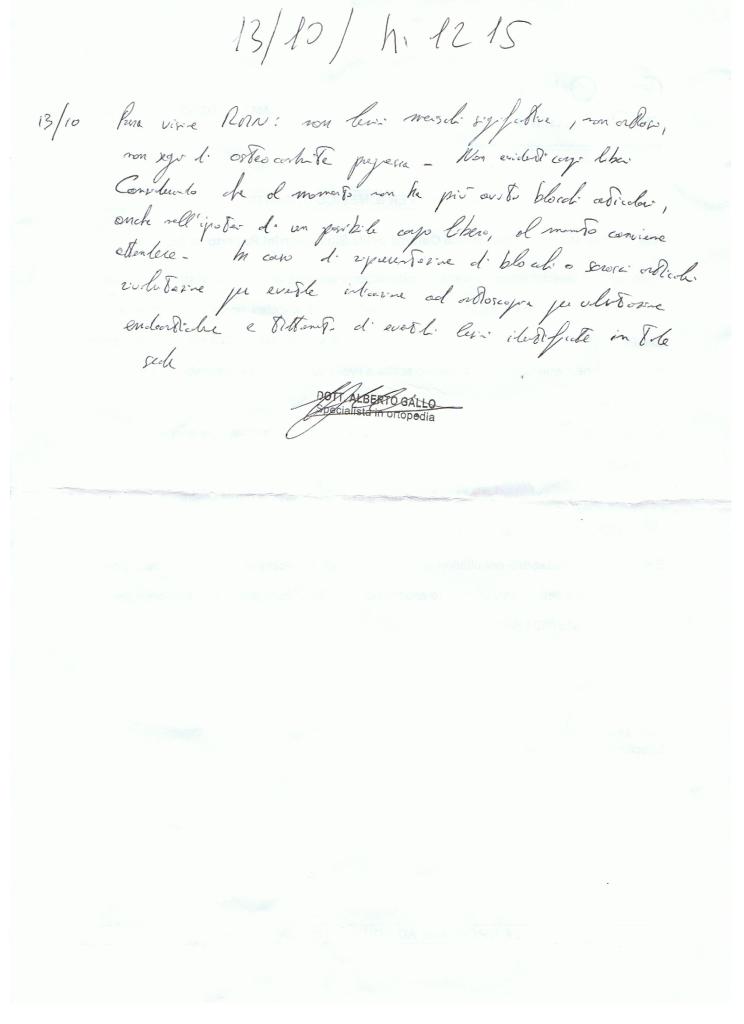 13/10/ h. 12 15
13/10 Presa visione RMN: non lesioni meniscali significative, non artrosi,
non segni di osteocondrite pregressa - Non evidenti corpi liberi
Considerato che al momento non ha più avuto blocchi articolari,
anche nell'ipotesi di un possibile corpo libero, al momento conviene
attendere - In caso di ripresentazione di blocchi o scrosci articolari
rivalutazione per eventuale indicazione ad artroscopia per valutazione
endoarticolare e trattamento di eventuali lesioni identificate in tale
sede
DOTT. ALBERTO GALLO
Specialista in ortopedia